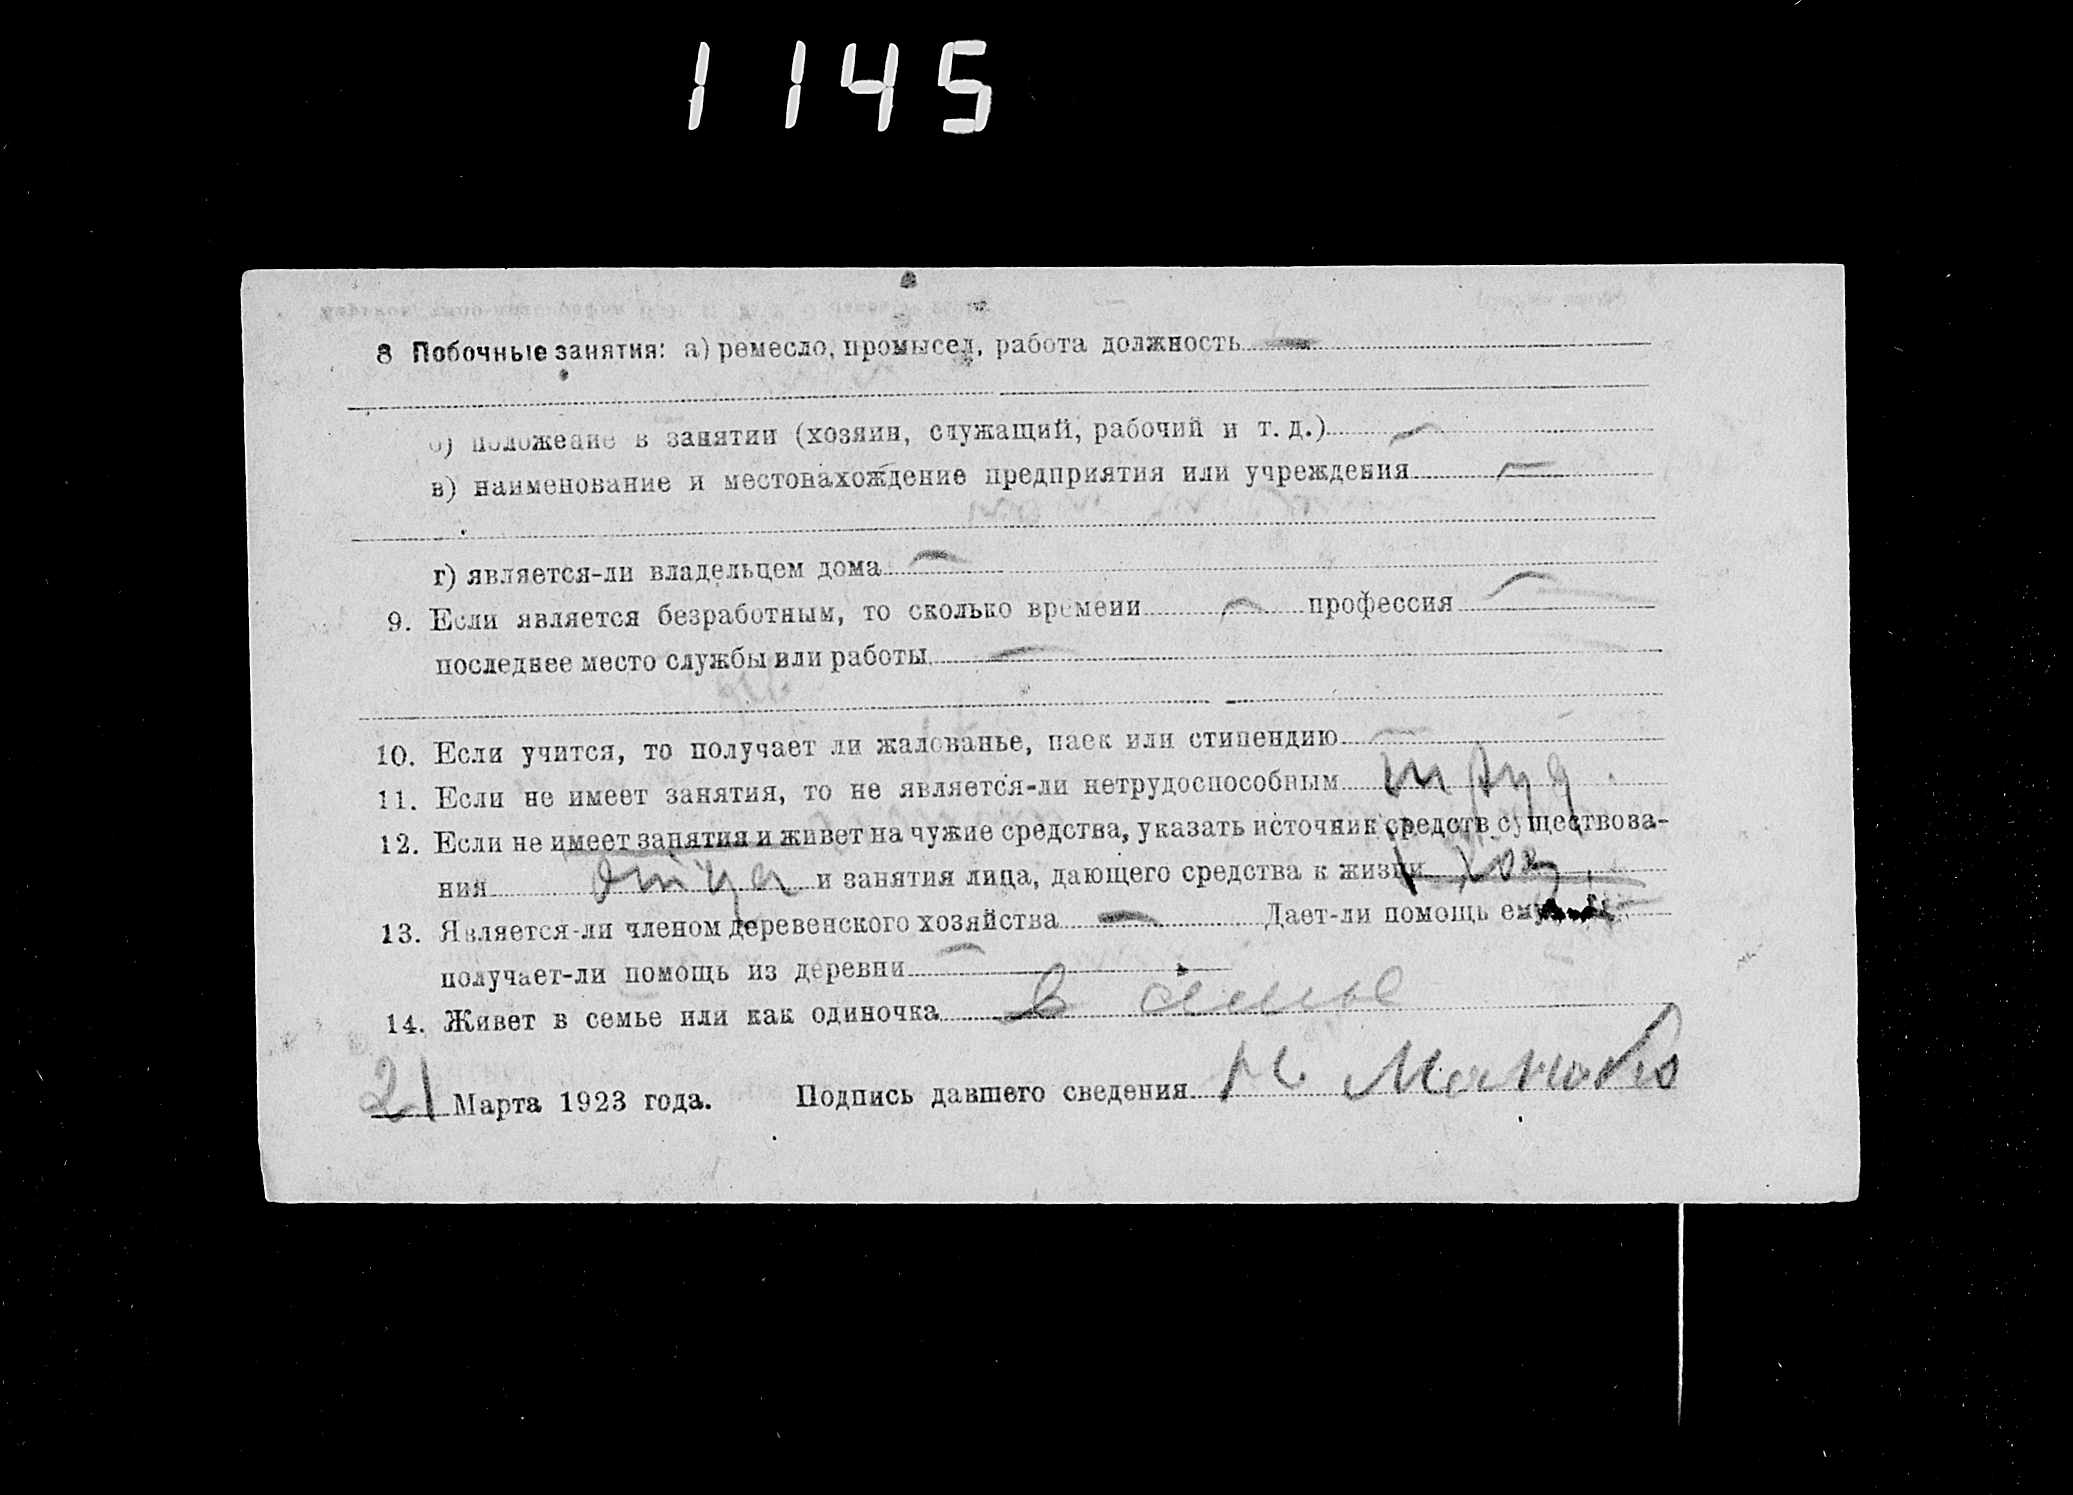 1145
8 Побочные занятия: а) ремесло, промысел, работа должность —
б) положение в занятии (хозяин, служащий, рабочий и т. д.) —
в) наименование и местонахождение предприятия или учреждения —
г) является-ли владельцем дома —
9. Если является безработным, то сколько времени — профессия —
последнее место службы или работы —
10. Если учится, то получает ли жалованье, паек или стипендию —
11. Если не имеет занятия, то не является-ли нетрудоспособным
12. Если не имеет занятия и живет на чужие средства, указать источник средств существова-
ния отца и занятия лица, дающего средства к жизни
13. Является-ли членом деревенского хозяйства — Дает-ли помощь ему
получает-ли помощь из деревни —
14. Живет в семье или как одиночка в семье
21 Марта 1923 года. Подпись давшего сведения